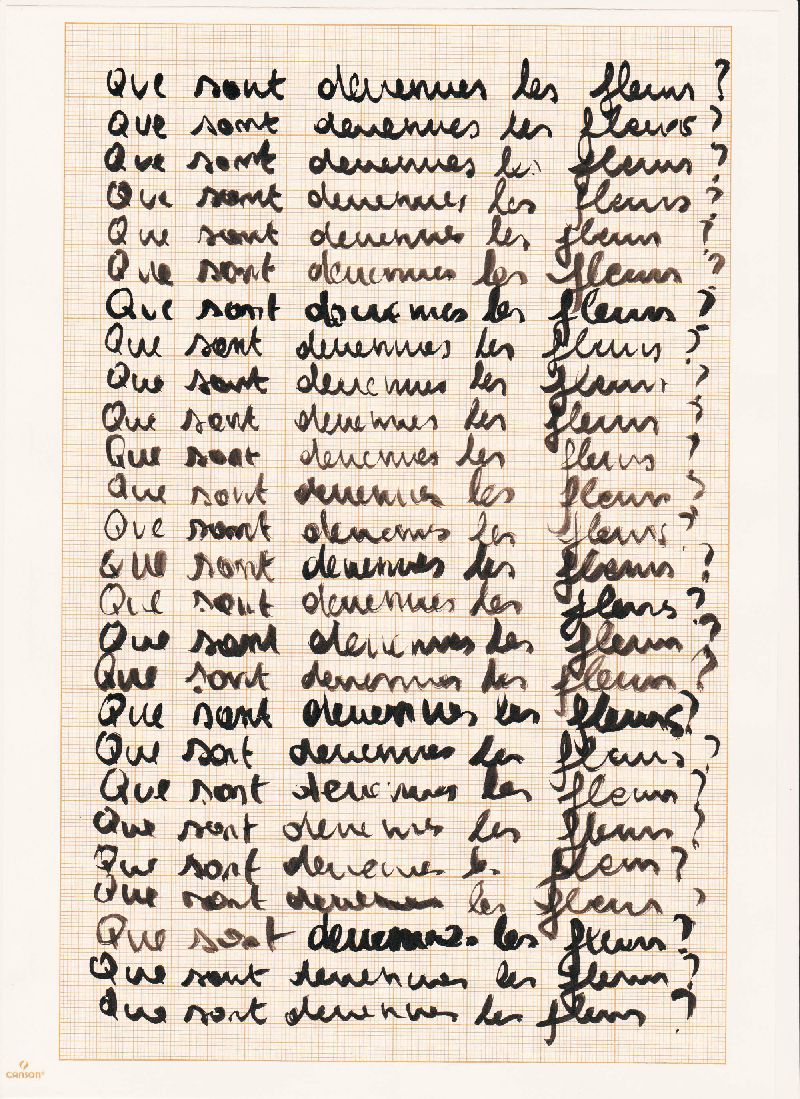 Que sont devenues les fleurs ?
Que sont devenues les fleurs ?
Que sont devenues les fleurs ?
Que sont devenues les fleurs ?
Que sont devenues les fleurs ?
Que sont devenues les fleurs ?
Que sont devenues les fleurs ?
Que sont devenues les fleurs ?
Que sont devenues les fleurs ?
Que sont devenues les fleurs ?
Que sont devenues les fleurs ?
Que sont devenues les fleurs ?
Que sont devenues les fleurs ?
Que sont devenues les fleurs ?
Que sont devenues les fleurs ?
Que sont devenues les fleurs ?
Que sont devenues les fleurs ?
Que sont devenues les fleurs ?
Que sont devenues les fleurs ?
Que sont devenues les fleurs ?
Que sont devenues les fleurs ?
Que sont devenues les fleurs ?
Que sont devenues les fleurs ?
Que sont devenues les fleurs ?
Que sont devenues les fleurs ?
Que sont devenues les fleurs ?
CANSON